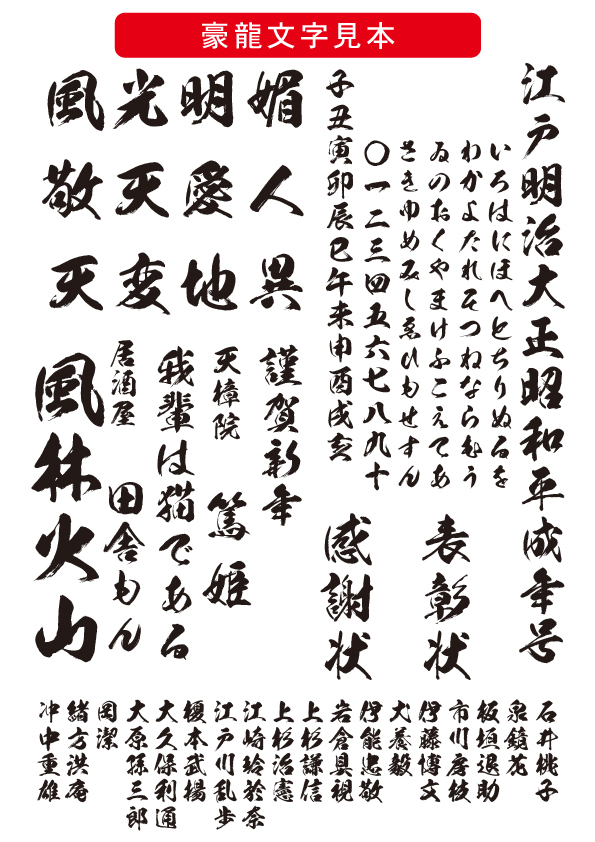 豪龍文字見本
江戸明治大正昭和平成年号
いろはにほへとちりぬるを
わかよたれそつねならむう
ゐのおくやまけふこえてあ
さきゆめみしゑひもせすん
〇一二三四五六七八九十
子丑寅卯辰巳午未申酉戌亥
表彰状
感謝状
風光明媚
敬天愛人
天変地異
謹賀新年
天樟院 篤姫
我輩は猫である
居酒屋 田舎もん
風林火山
石井桃子
泉鏡花
板垣退助
市川房枝
伊藤博文
犬養毅
伊能忠敬
岩倉具視
上杉謙信
上杉治憲
江崎玲於奈
江戸川乱歩
榎本武揚
大久保利通
大原孫三郎
岡潔
緒方洪庵
冲中重雄